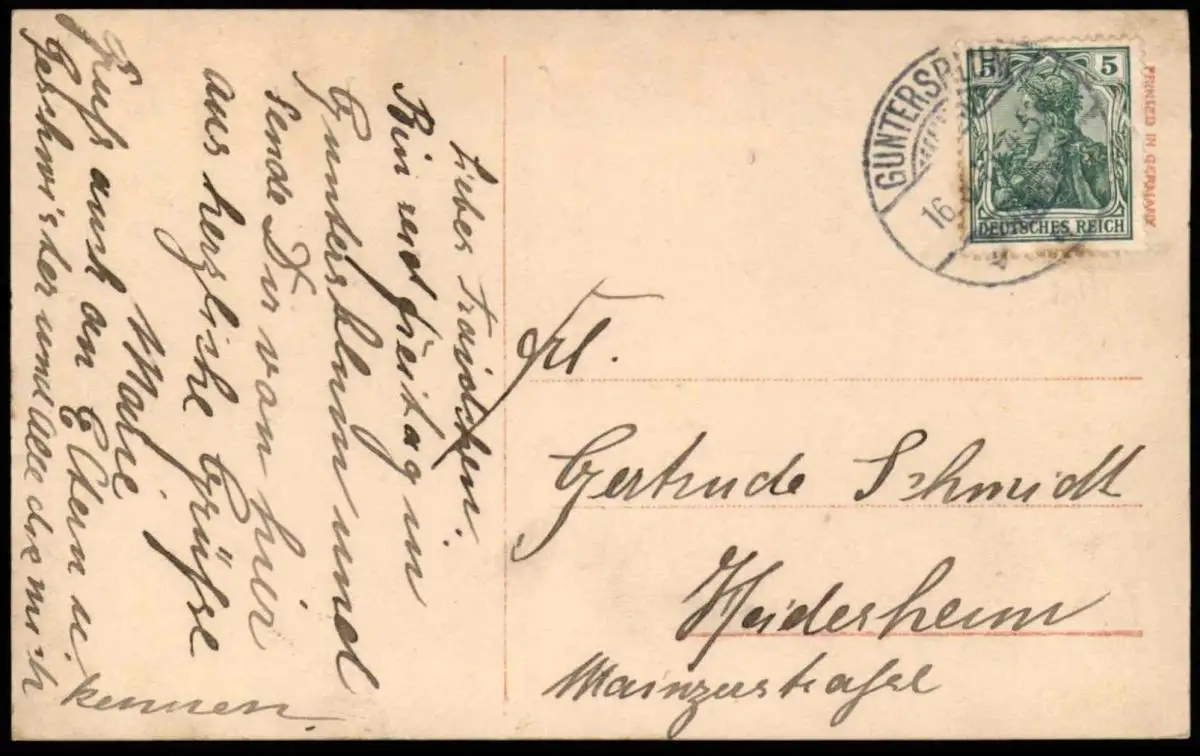 Liebes Traudchen.
Bin seit Freitag in
Guntersblum und
sende Dir von hier
aus herzliche Grüße
Marie
Gruß auch an Eltern u.
Geschwister und Alle die mich
kennen.
GUNTERSBLUM
16
5 5
DEUTSCHES REICH
PRINTED IN GERMANY
Frl.
Gertrude Schmidt
Heidesheim
Mainzerstraße